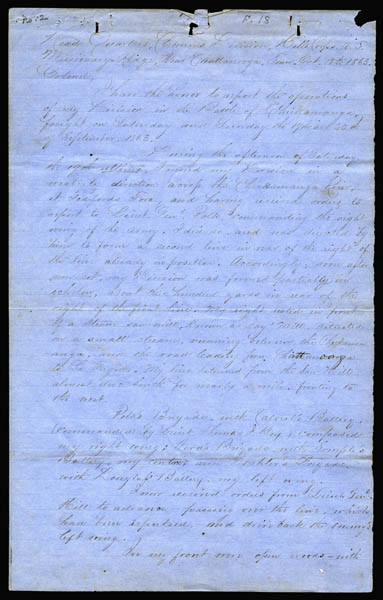 No 2 F. 18
Head Quarters, Cleburne's Division, Hill's Corps, A. T.
Missionary Ridge, Near Chattanooga, Tenn. Oct. 18th 1863.
Colonel,
I have the honor to report the operations
of my Division in the Battle of Chickamauga,
fought on Saturday and Sunday the 19th and 20th
of September, 1863.
During the afternoon of Saturday
the 19th ultimo, I moved my Division in a
westerly direction across the Chickamauga River
at Tedford's Ford, and having received orders to
report to Lieut. Genl. Polk commanding the right
wing of the Army, I did so, and was directed by
him to form a second line in rear of the right of
the line already in position. Accordingly, soon after
sunset, my Division was formed partially in
echelon, about three hundred yards in rear of the
right of the first line. My right rested in front
of a steam saw mill, known as Jay's Mill, situated
on a small stream, running between the Chickamauga,
and the road leading from Chattanooga
to La Fayette. My line extended from the Saw Mill
almost due South for nearly a mile, fronting to
the west.
Polk's Brigade, with Calvert's Battery,
(commanded by Lieut. Thomas J. Key,) composed
my right wing; Wood's Brigade with Semple's
Battery, my center, and Deshler's Brigade,
with Douglas' Battery, my left wing.
I now received orders from Lieut. Genl.
Hill to advance passing over the line, which
had been repulsed, and drive back the enemy's
left wing.
In my front were open woods - with